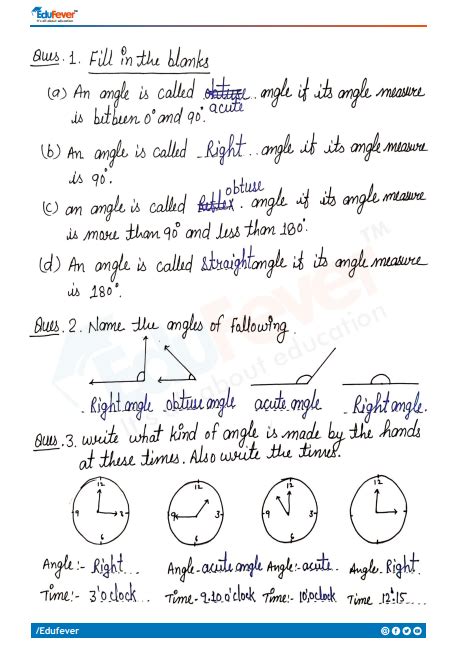 EduFever
It's all about education
Ques. 1. Fill in the blanks
(a) An angle is called obtuse acute angle if its angle measure
is between 0° and 90°.
(b) An angle is called Right angle if its angle measure
is 90°.
(c) an angle is called Reflex obtuse angle if its angle measure
is more than 90° and less than 180°.
(d) An angle is called straight angle if its angle measure
is 180°.
Ques. 2. Name the angles of following.
Right angle obtuse angle acute angle Right angle.
Ques. 3. write what kind of angle is made by the hands
at these times. Also write the times.
12 12 12 12
9 3 9 3 9 3 9 3
6 6 6 6
Angle:- Right Angle- acute angle Angle:- acute Angle- Right
Time:- 3'o'clock Time- 9.10 o'clock Time:- 10'o'clock Time 12:15
EduFever
all about education
TM
/Edufever